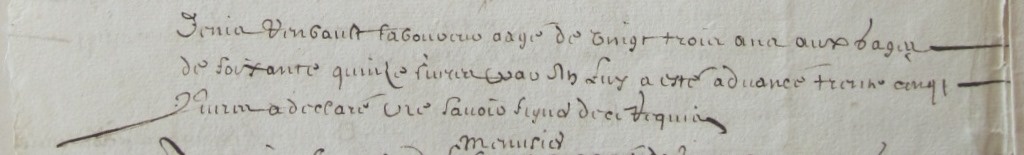 Denis Renbault laboureur aagé de vingt trois ans aux gages
de soixante quinze livres sur quoy luy a esté advancé trente cinq
livres a declaré ne savoir signer de ce requis
menusier